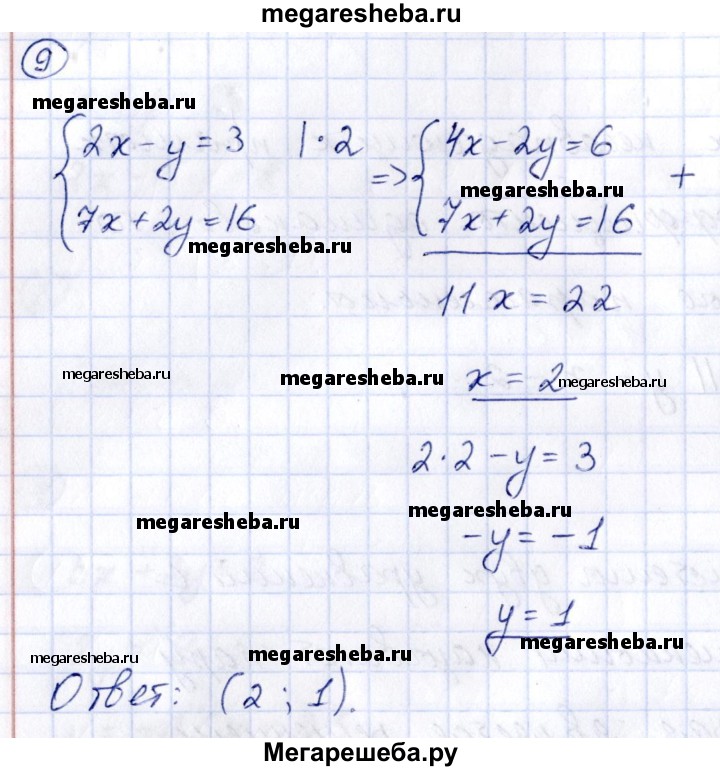 megaresheba.ru
9
megaresheba.ru
{ 2x - y = 3 | · 2 => { 4x - 2y = 6 +
megaresheba.ru
7x + 2y = 16 7x + 2y = 16
megaresheba.ru
11x = 22
megaresheba.ru megaresheba.ru x = 2 megaresheba.ru
2 · 2 - y = 3
megaresheba.ru megaresheba.ru
-y = -1
y = 1
megaresheba.ru megaresheba.ru megaresheba.ru
Ответ: (2 ; 1).
Мегарешеба.ру